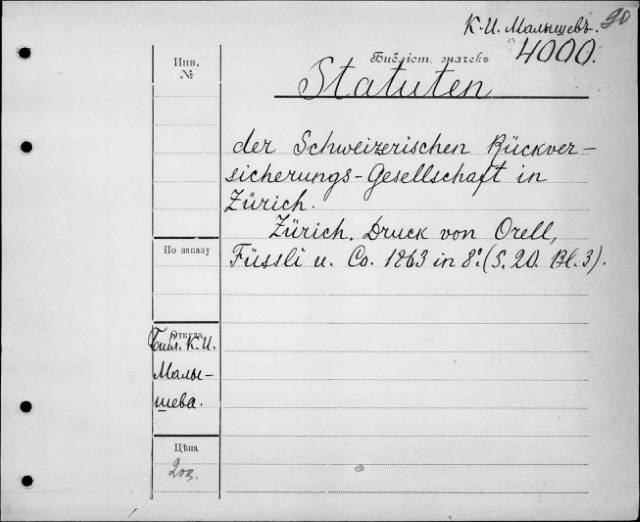 К. И. Малышевъ. 90
Библіот. значекъ 4000.
Инв.
№
Statuten
der Schweizerischen Rückver-
sicherungs-Gesellschaft in
Zürich.
Zürich. Druck von Orell,
По заказу
Füssli u. Co. 1863 in 8º. (S. 20. Bl. 3).
Откуда
Библ. К. И.
Малы-
шева.
Цѣна